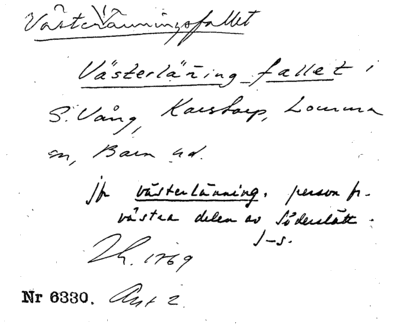 Västerlänningsfallet
Västerläning fallet i
S. Vång, Karstorp, Lomma
sn, Bara hd.
jfr västerlänning, person fr.
västra delen av Söderslätt.
I-s.
Nr 6330.